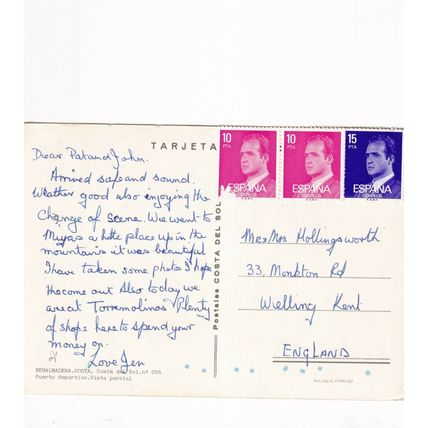 TARJETA
10 PTA
ESPAÑA
CORREOS
10 PTA
ESPAÑA
CORREOS
15 PTA
ESPAÑA
CORREOS
Dear Pat and John.
Arrived safe and sound.
Weather good also enjoying the
Change of scene. We went to
Mijas a little place up in the
mountains it was beautiful
I have taken some photos I hope
the come out Also today we
are at Torremolinos Plenty
of shops here to spend your
money on.
Love Jen
32
BENALMADENA,COSTA. Costa del Sol.nº 095
Puerto deportivo.Vista parcial
Postales COSTA DEL SOL
Mr & Mrs Hollingsworth
33, Monkton Rd
Welling Kent
ENGLAND